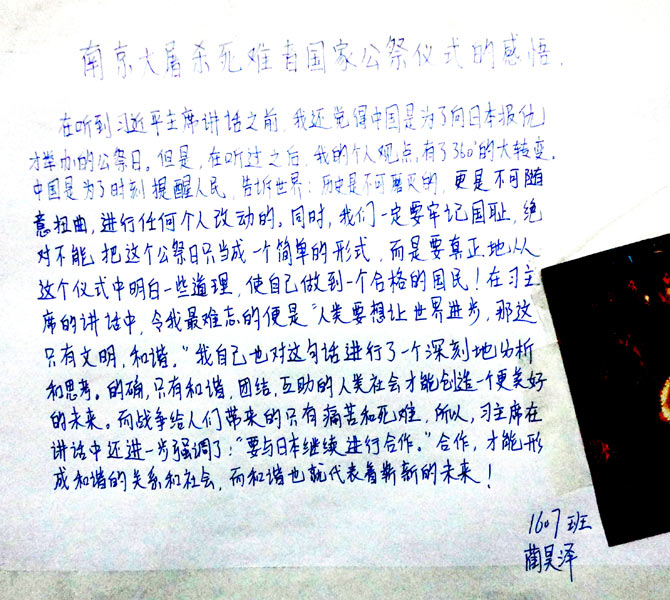 南京大屠杀死难者国家公祭仪式的感悟.
在听到习近平主席讲话之前,我还觉得中国是为了向日本报仇
才举办的公祭日。但是,在听过之后,我的个人观点,有了360°的大转变.
中国是为了时刻提醒人民,告诉世界:历史是不可磨灭的,更是不可随
意扭曲,进行任何个人改动的。同时,我们一定要牢记国耻,绝
对不能把这个公祭日只当成一个简单的形式,而是要真正地从
这个仪式中明白一些道理,使自己做到一个合格的国民!在习主
席的讲话中,令我最难忘的便是“人类要想让世界进步,那这
只有文明,和谐。”我自己也对这句话进行了一个深刻地分析
和思考。的确,只有和谐,团结,互助的人类社会才能创造一个更美好
的未来。而战争给人们带来的只有痛苦和死难,所以,习主席在
讲话中还进一步强调了:“要与日本继续进行合作。”合作,才能形
成和谐的关系和社会,而和谐也就代表着崭新的未来!
1607班
蔺昊泽